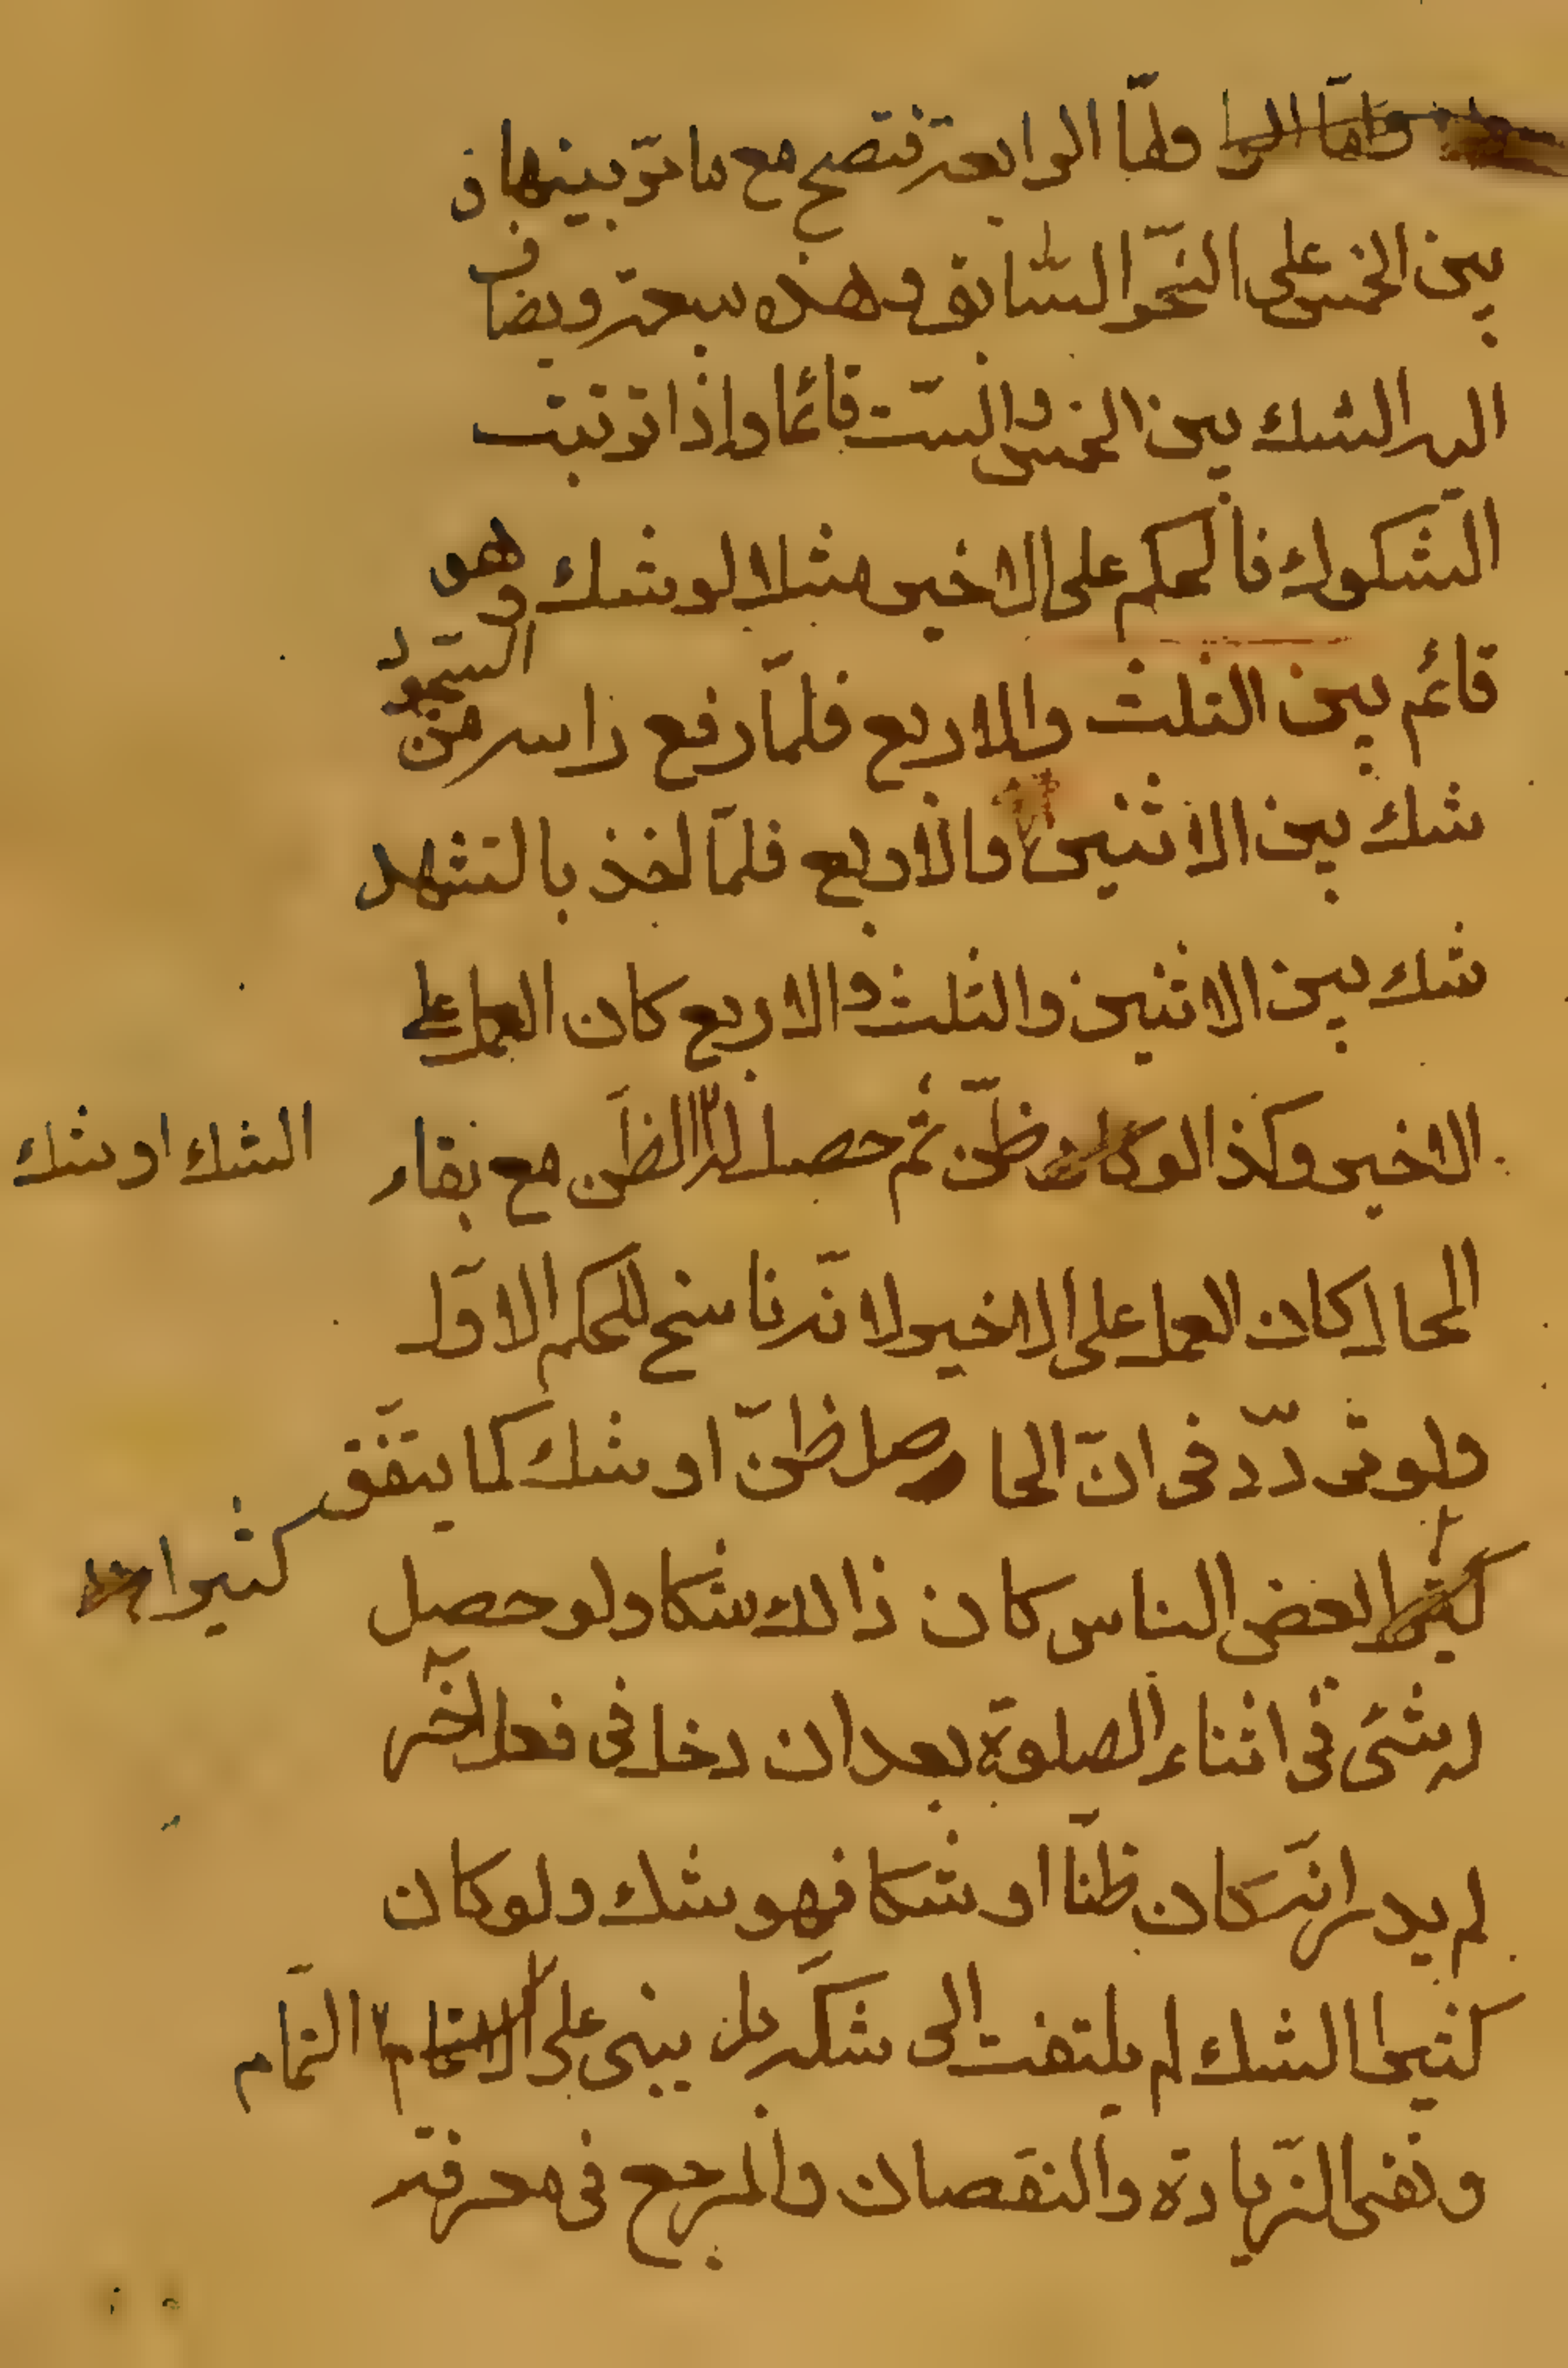 وامّا الرا وامّا الرابعة فتصح مع ما توّ بينها و
بين الخمس على النّحو السّابق وهذه سبعة ويضاف
اليه الشك بين الخمس والستّ قائما واذا ترتبت
الشكوك فالحكم على الاخير مثلا لو شك وهو
قائم بين الثلث والاربع فلمّا رفع راسه من السّجود
شك بين الاثنين والاربع فلمّا اخذ بالتشهد
شك بين الاثنين والثلث والاربع كان العمل على
الاخير وكذا لو كان ظنّ ثم حصل له الظنّ مع بقاء الشك او شك
الحال كان العمل على الاخير لانّه ناسخ للحكم الاوّل
ولو تردّد في انّ الحاصل ظنّ او شك كما يتفق كثيرا
كثيرا لبعض الناس كان ذالك شكا ولو حصل
له شئ في اثناء الصلوة بعد ان دخل في فعل آخر
لم يدر انّه كان ظنّا او شكا فهو شك ولو كان
كثير الشك لم يلتفت الى شكّه بل يبنى على التمام التّمام
ونفى الزّيادة والنقصان والمرجع في معرفته